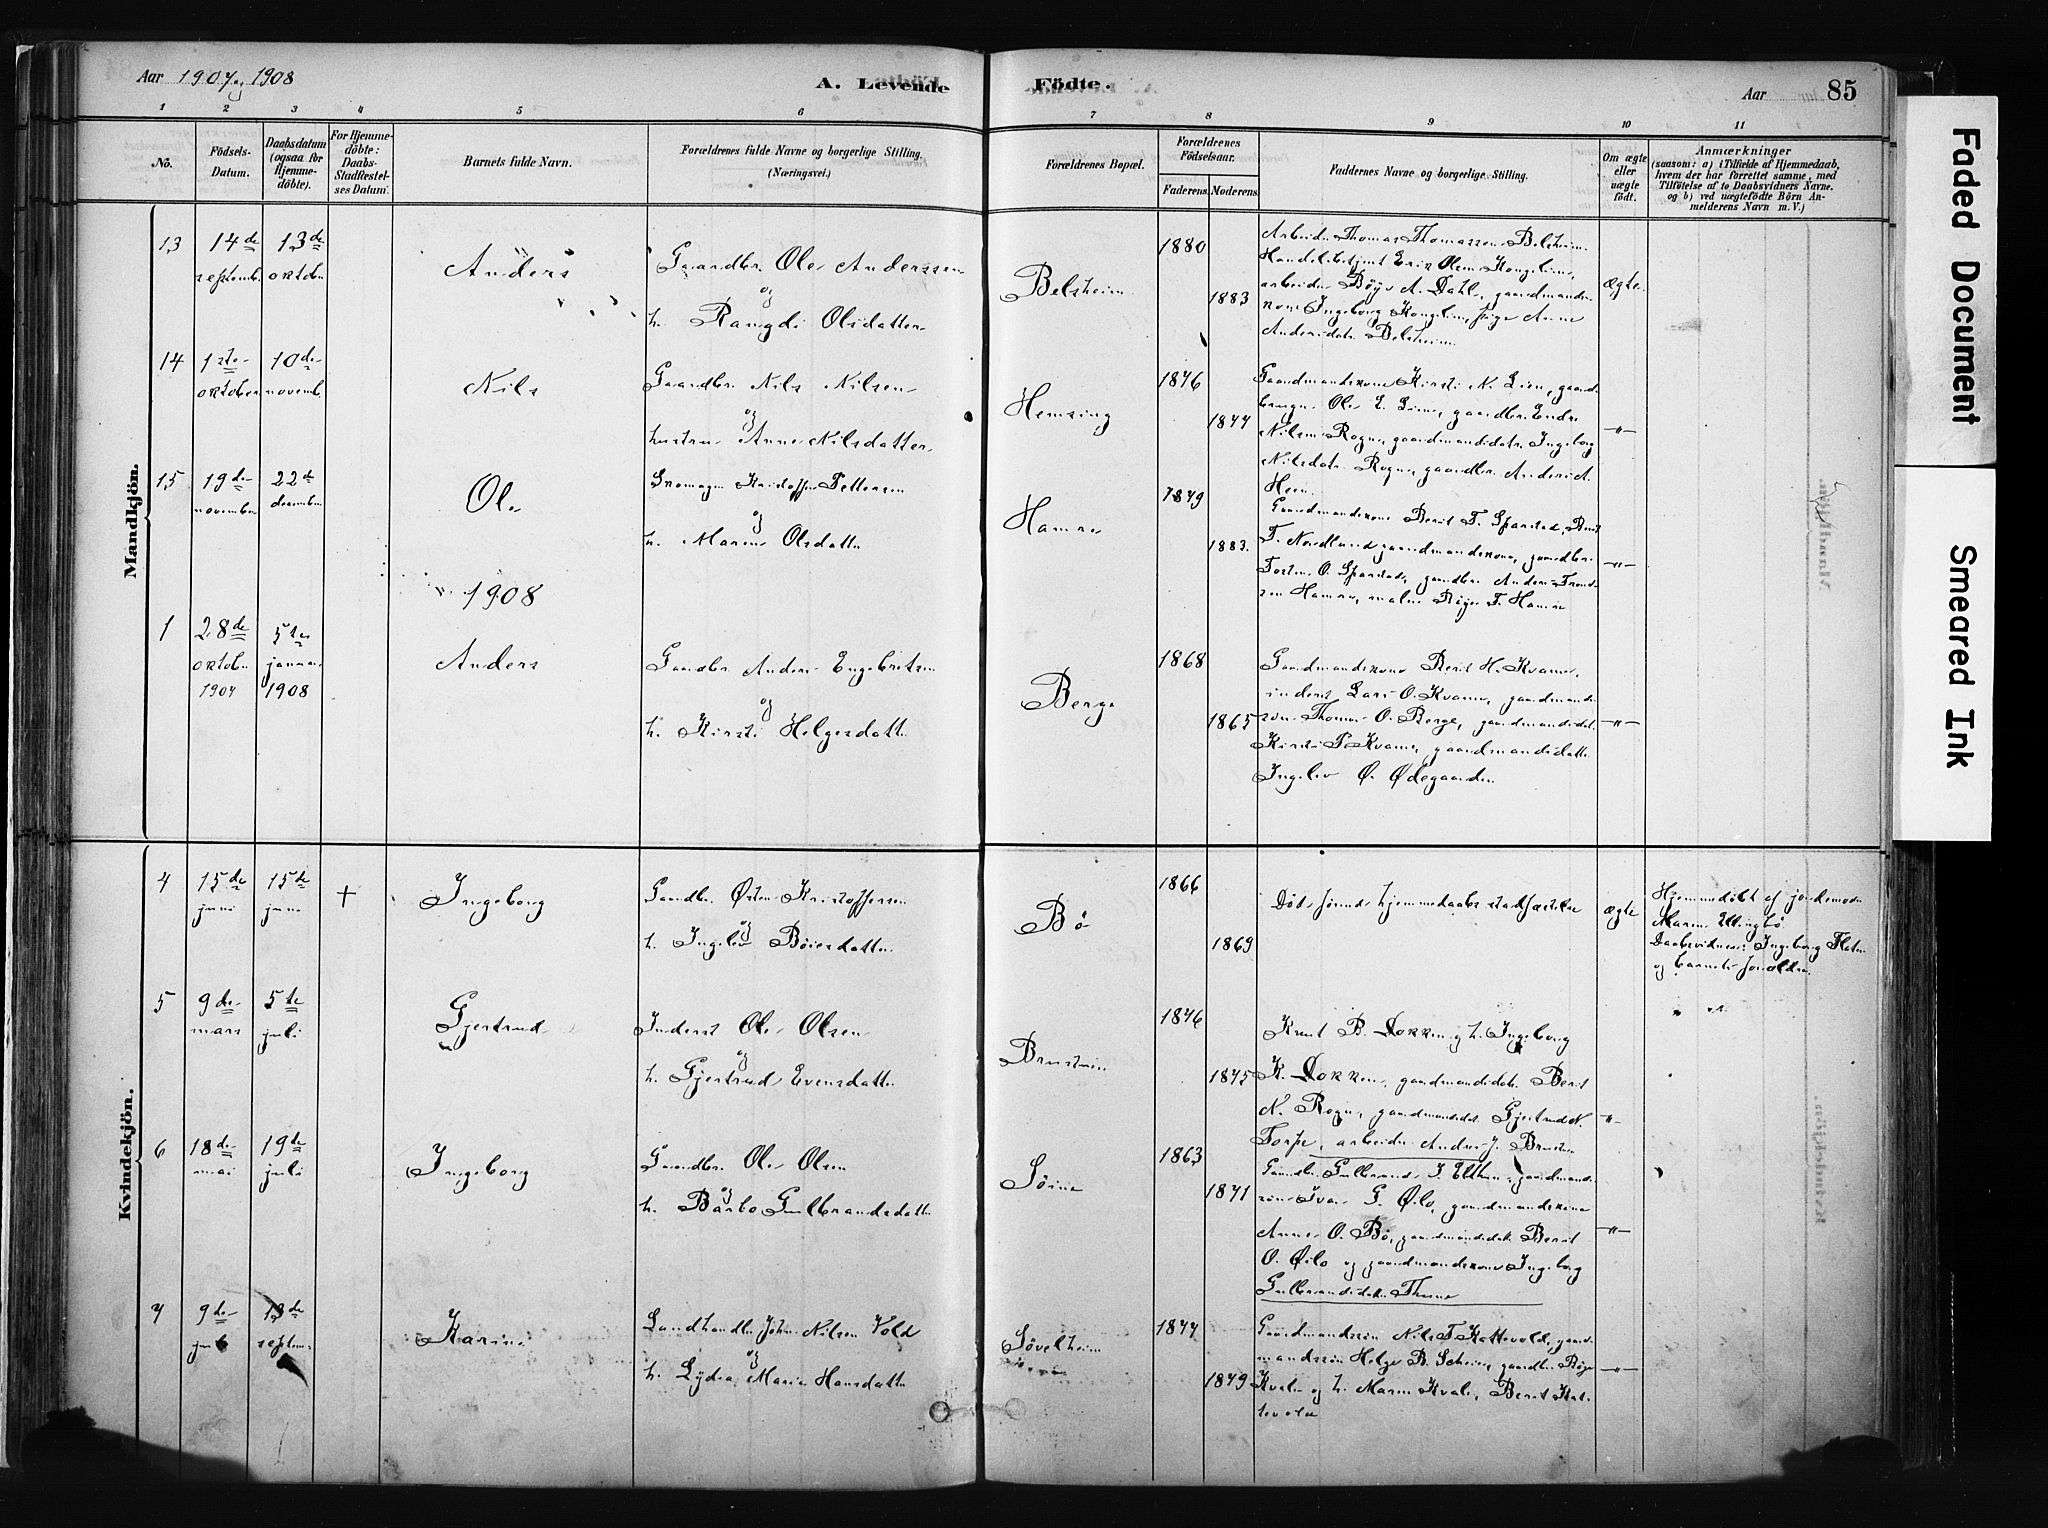 Aar 1907 og 1908
A. Levende
Födte.
Aar
85
1 2 3 4 5 6 7 8 9 10 11
No.
Födsels-Datum.
Daabsdatum (ogsaa for Hjemmedöbte).
For Hjemmedöbte: Daabs-Stadfæstelses Datum.
Barnets fulde Navn.
Forældrenes fulde Navne og borgerlige Stilling.
(Næringsvei.)
Forældrenes Bopæl.
Forældrenes Födselsaar.
Faderens. Moderens.
Faddernes Navne og borgerlige Stilling.
Om ægte eller uægte födt.
Anmærkninger
(saasom: a) i Tilfælde af Hjemmedaab,
hvem der har forrettet samme, med
Tilföielse af to Daabsvidners Navne.
og b) ved uægtefödte Börn An-
melderens Navn m. V.)
Mandkjön.
13
14de septembr
13de oktober
Anders
Gaardbr. Ole Anderssen
og
h. Rangdi Olsdatter
Belsheim
1880
1883
Arbeider Thomas Thomassen Belsheim
Handelsbetjent Erik Olsen Kongelien,
arbeider Böye A. Dahl, gaardmands
kone Ingeborg Kongelien, pige Anne
Andersdatr Belsheim
ægte.
14
1ste oktober
10de novemb.
Nils
Gaardbr. Nils Nilsen
og
hustru Anne Nilsdatter
Hemsing
1876
1877
Gaardmandskone Kirsti N. Lien, gaard
bruger Ole E. Lien, gaardbr. Endre
Nilsen Rogne, gaardmandsdatr Ingeborg
Nilsdatr Rogne, gaardbr. Anders A.
Hem.
-"-
15
19de november
22de december
Ole
Kristoffer Pettersen
og
h. Maren Olsdatter
Hamre
1879
1883.
Gaardmandskone Berit T. Sparstad, Berit
T. Nordland gaardmandskone, gaardbr.
Torsten O. Sparstad, gaardbr. Anders Trond-
sen Hamre, maler Böye T. Hamre
-"-
1908
1
28de oktober 1907
5te januar 1908
Anders
Gaardbr. Anders Engebretsen
og
h. Kirsti Helgesdatter
Berge
1868
1865
Gaardmandskone Berit H. Kvame,
inderst Lars O. Kvame, gaardmands
søn Thomas O. Berge, gaardmandsdat.
Kirsti T. Kvame, gaardmandsdatter
Ingelev O. Ødegaarden
-"-
Kvindekjön.
4
15de juni
15de juni
+
Ingeborg
Gaardbr. Østen Kristoffersen
og
h. Ingelev Böiesdatter
Bö
1866
1869
Död förend hjemmedaabs stadfæstelse
ægte
Hjemmedöbt af jordemoder
Maren Ellingbö
Daabsvidner: Ingeborg Flaten
og barnets forældre.
5
9de mars
5te juli
Gjertrud
Inderst Ole Olsen
og
h. Gjertrud Evensdatter
Brusteien
1876
1875
Knut B. Dokken og h. Ingeborg
K. Dokken, gaardmandsdatr Berit
N. Rogne, gaardmandsdat. Gjertrud N.
Torpe, arbeider Andres J. Brustein
-"-
6
18de mai
19de juli
Ingeborg
Gaardbr. Ole Olsen
og
h. Barbo Gulbrandsdatter
Söine
1863
1871
Gaardbr. Gulbrand I. Elthun, gaardmands
søn Ivar G. Öilo, gaardmandskone
Anne O. Bö, gaardmandsdatr Berit
O. Öilo og gaardmandskone Ingeborg
Gulbrandsdatter Thune
-"-
7
9de juli
13de septem.
Karine
Landhandler John Nilsen Vold
og
h. Lydia Maria Hansdatter
Sövelheim
1877
1879
Gaardmandssön Nils T. Kattevold, gaard-
mandssön Helge B. Scheie, gaardbr. Böye
Kvale og h. Maren Kvale, Berit Kat-
tevold
-"-
Faded Document
Smeared Ink